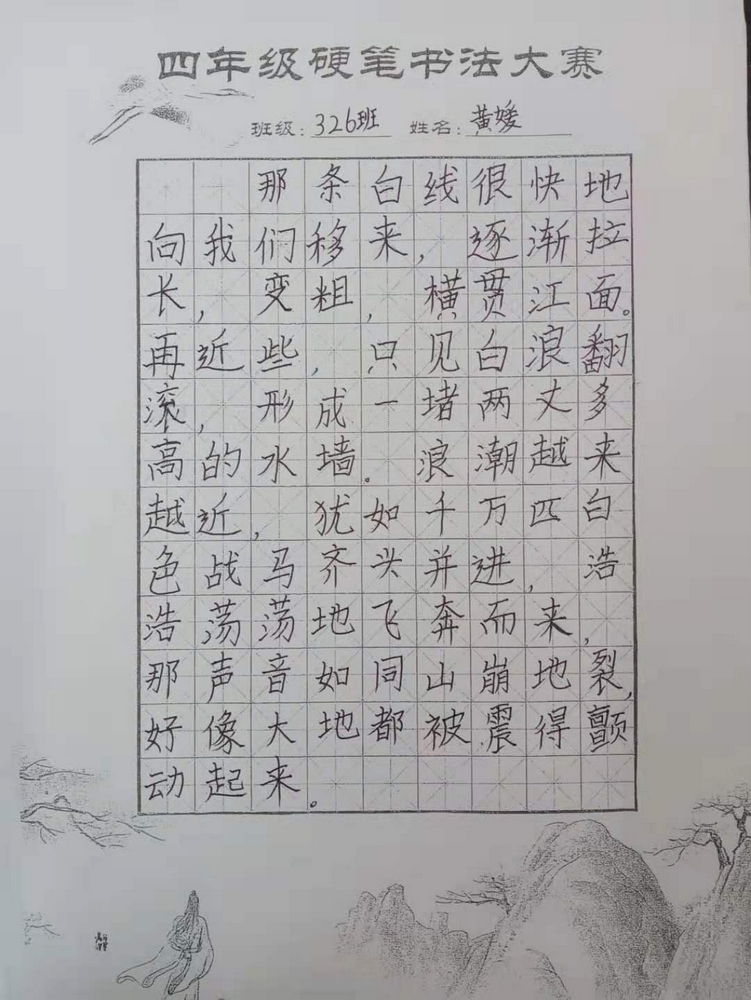 四年级硬笔书法大赛
班级：326班 姓名：黄媛
那条白线很快地
向我们移来，逐渐拉
长，变粗，横贯江面。
再近些，只见白浪翻
滚，形成一堵两丈多
高的水墙。浪潮越来
越近，犹如千万匹白
色战马齐头并进，浩
浩荡荡地飞奔而来，
那声音如同山崩地裂，
好像大地都被震得颤
动起来。